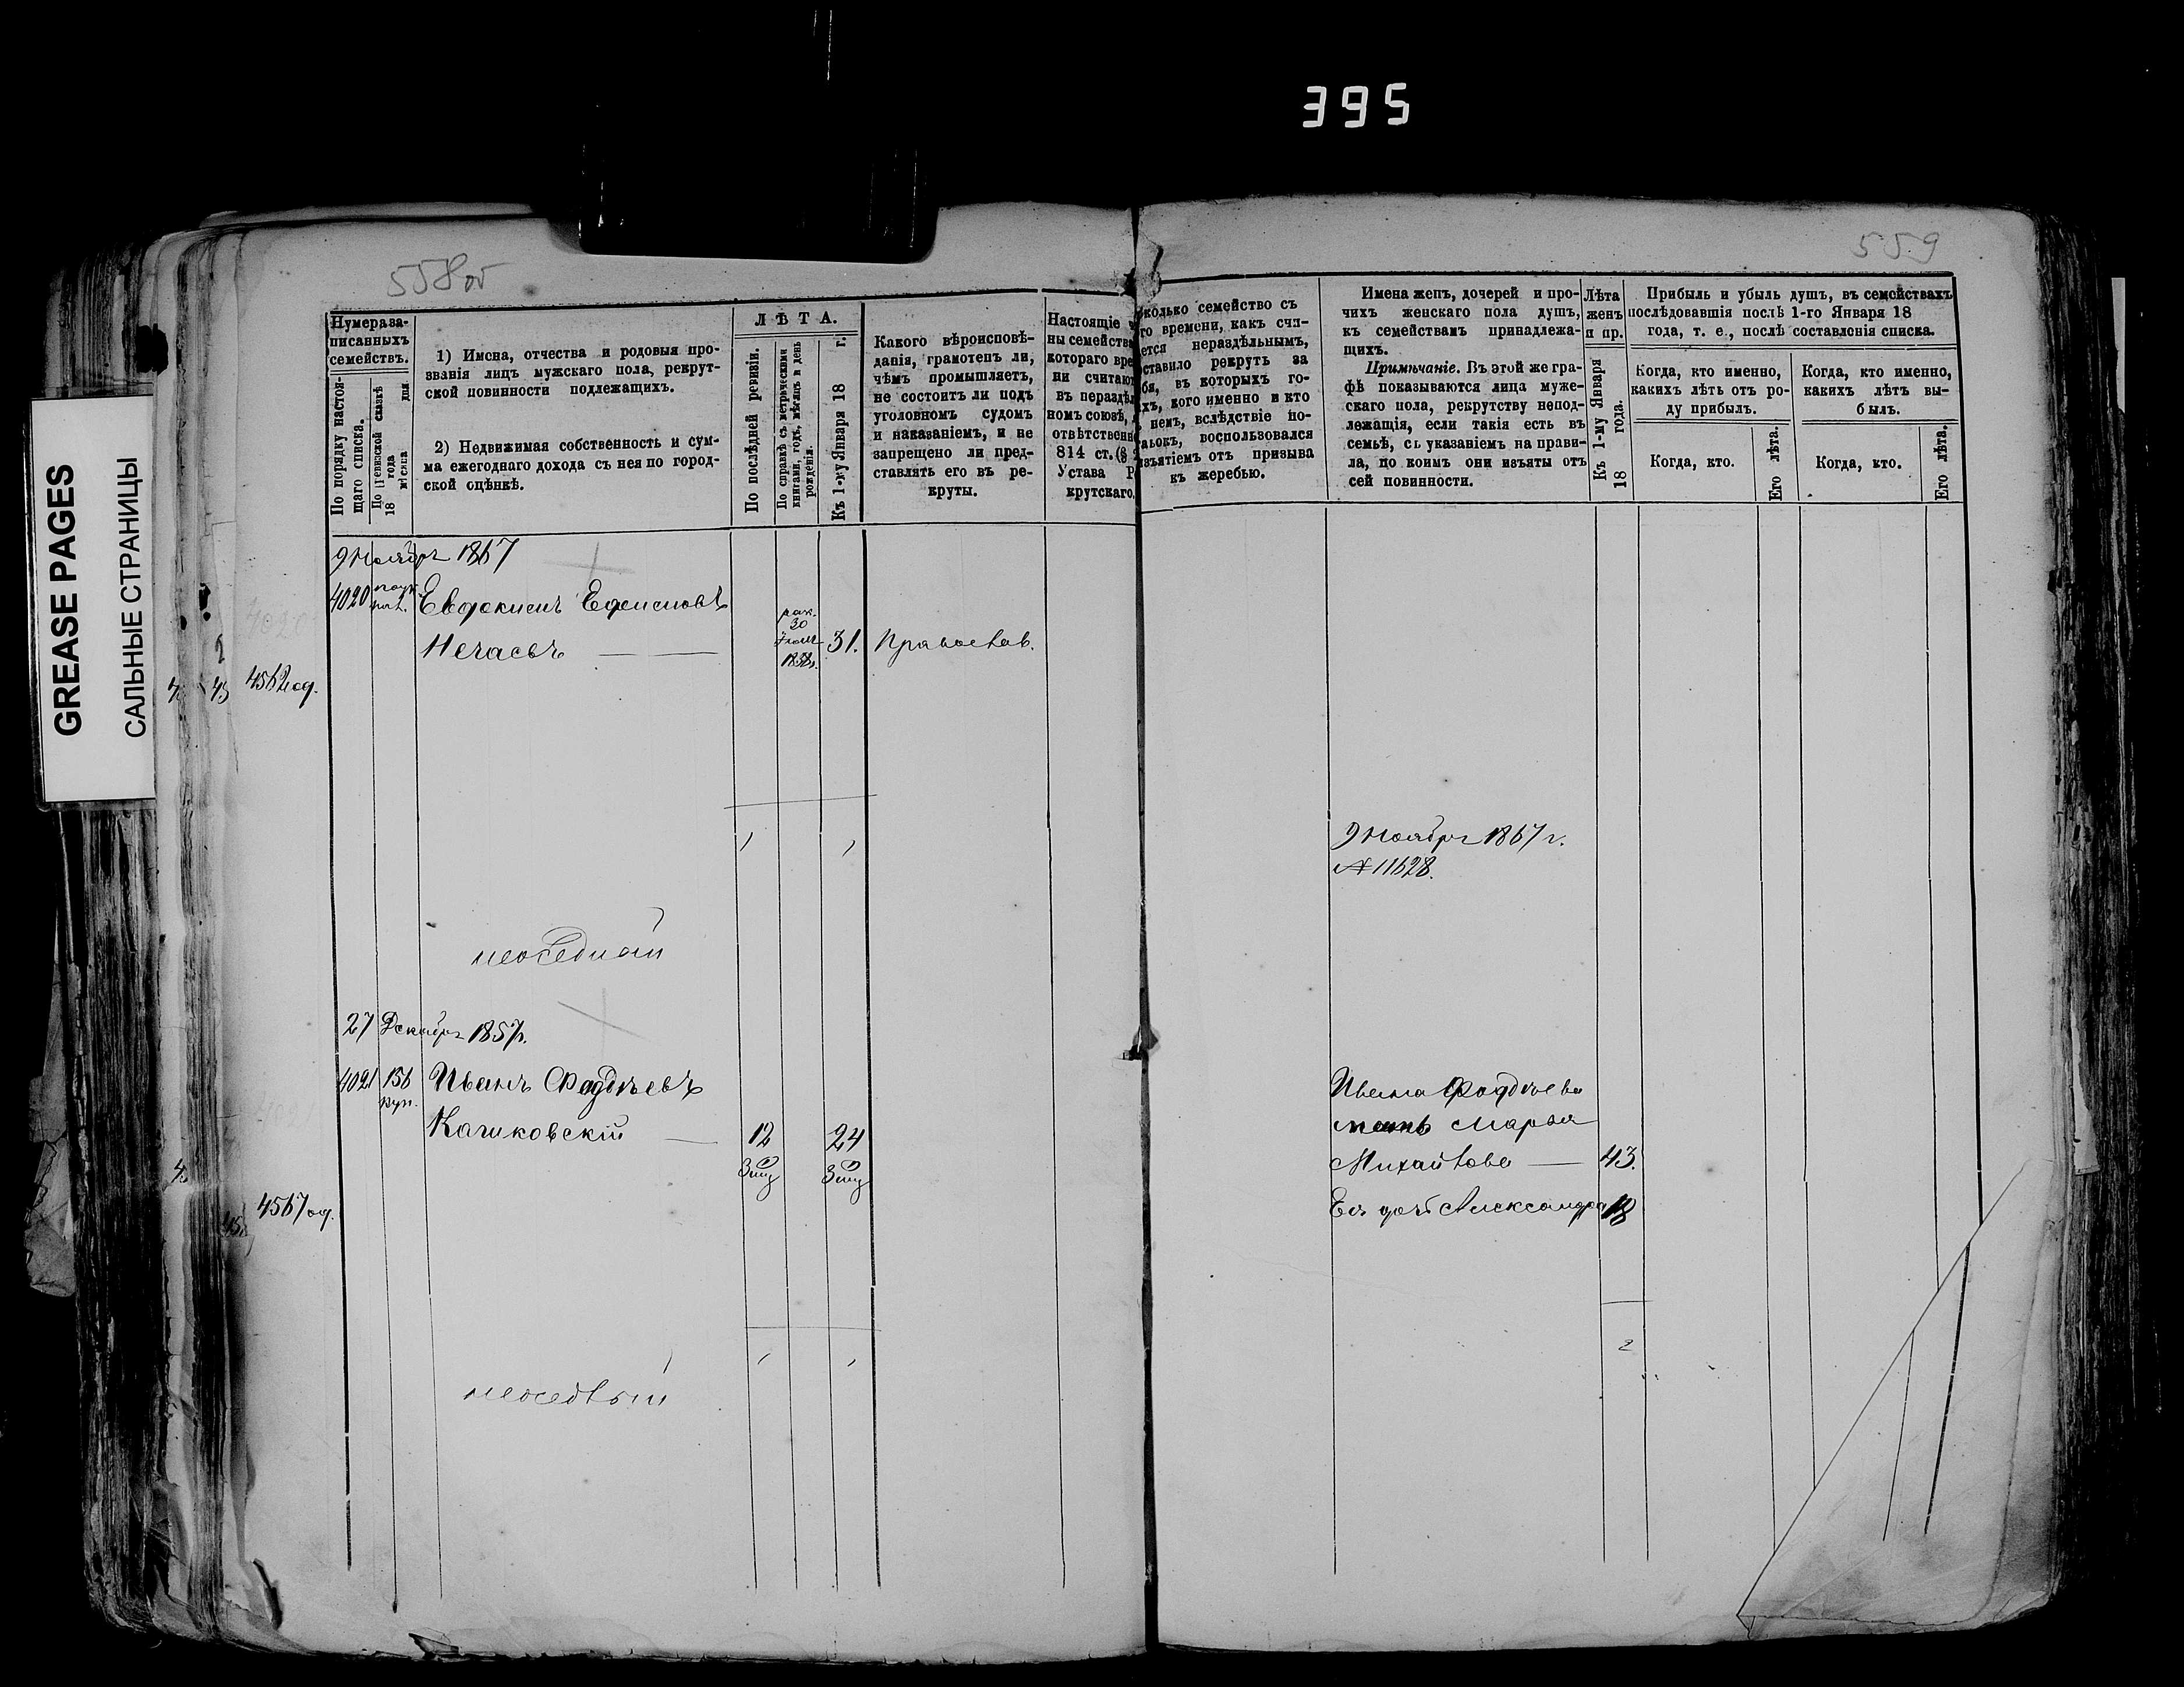 395
GREASE PAGES
САЛЬНЫЕ СТРАНИЦЫ
558об
559
Нумера за-
писанныхъ
семействъ.
По порядку настоя-
щаго списка.
По ревизской сказкѣ
18 года
мѣсяца дня.
1) Имена, отчества и родовыя про-
званія лицъ мужскаго пола, рекрут-
ской повинности подлежащихъ.
2) Недвижимая собственность и сум-
ма ежегоднаго дохода съ нея по город-
ской оцѣнкѣ.
ЛѢТА.
По послѣдней ревизіи.
По справкѣ съ метрическими
книгами, годъ, мѣсяцъ и день
рожденія.
Къ 1-му Января 18 г.
Какого вѣроисповѣ-
данія, грамотенъ ли,
чѣмъ промышляетъ,
не состоитъ ли подъ
уголовномъ судомъ
и наказаніемъ, и не
запрещено ли пред-
ставлять его въ ре-
круты.
Настоящіе ч
ны семейства
котораго вре
ни считают
въ нераздѣл
номъ союзѣ,
отвѣтственн
814 ст. (§
Устава Р
крутскаго.
сколько семейство съ
го времени, какъ счи-
ется нераздѣльнымъ,
ставило рекрутъ за
бя, въ которыхъ го-
хъ, кого именно и кто
немъ, вслѣдствіе по-
ылокъ, воспользовался
изъятіемъ отъ призыва
къ жеребью.
Имена женъ, дочерей и про-
чихъ женскаго пола душъ,
къ семействамъ принадлежа-
щихъ.
Примѣчаніе. Въ этой же гра-
фѣ показываются лица муже-
скаго пола, рекрутству непод-
лежащія, если такія есть въ
семьѣ, съ указаніемъ на прави-
ла, по коимъ они изъяты отъ
сей повинности.
Лѣта
женъ
и пр.
Къ 1-му Января
18 года.
Прибыль и убыль душъ, въ семействахъ
послѣдовавшія послѣ 1-го Января 18
года, т. е., послѣ составленія списка.
Когда, кто именно,
какихъ лѣтъ отъ ро-
ду прибылъ.
Когда, кто именно,
какихъ лѣтъ вы-
былъ.
Когда, кто.
Его лѣта.
Когда, кто.
Его лѣта.
9 Ноября 1867
4020
Евдокимъ Ефимовъ
Нечаевъ
30
31.
Православ.
4562 од.
9 Ноября 1867 г.
№ 11628.
неоседлый
27 Декабря 1857г.
4021 156 Иванъ Фаддѣевъ
куп.
Качковскій 12 24
4567 од.
Ивана Фаддѣева
мать Марья
Михайлова 43.
Ея дочь Александра 18
2
неоседлый